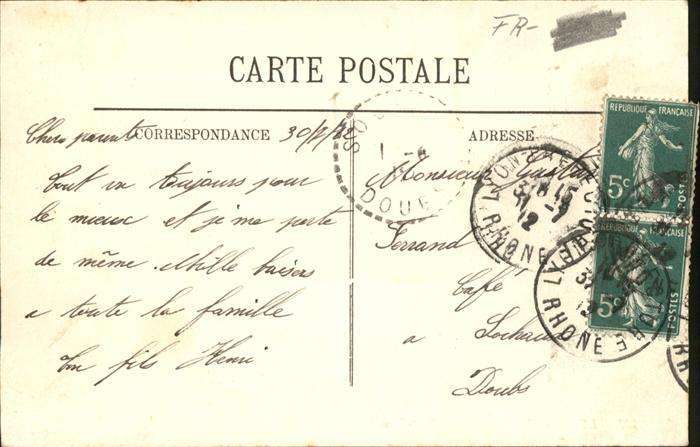 FR-
CARTE POSTALE
CORRESPONDANCE
ADRESSE
Chers parents 30/7/12
tout va toujours pour
le mieux et je me porte
de même. Mille baisers
a toute la famille
Ton fils Henri
Monsieur Gustave
Ferrand
Café
a Sochaux
Doubs
REPUBLIQUE FRANÇAISE
5c
POSTES
5c
POSTES
DOUBS
LYON
RHONE
12
RHONE